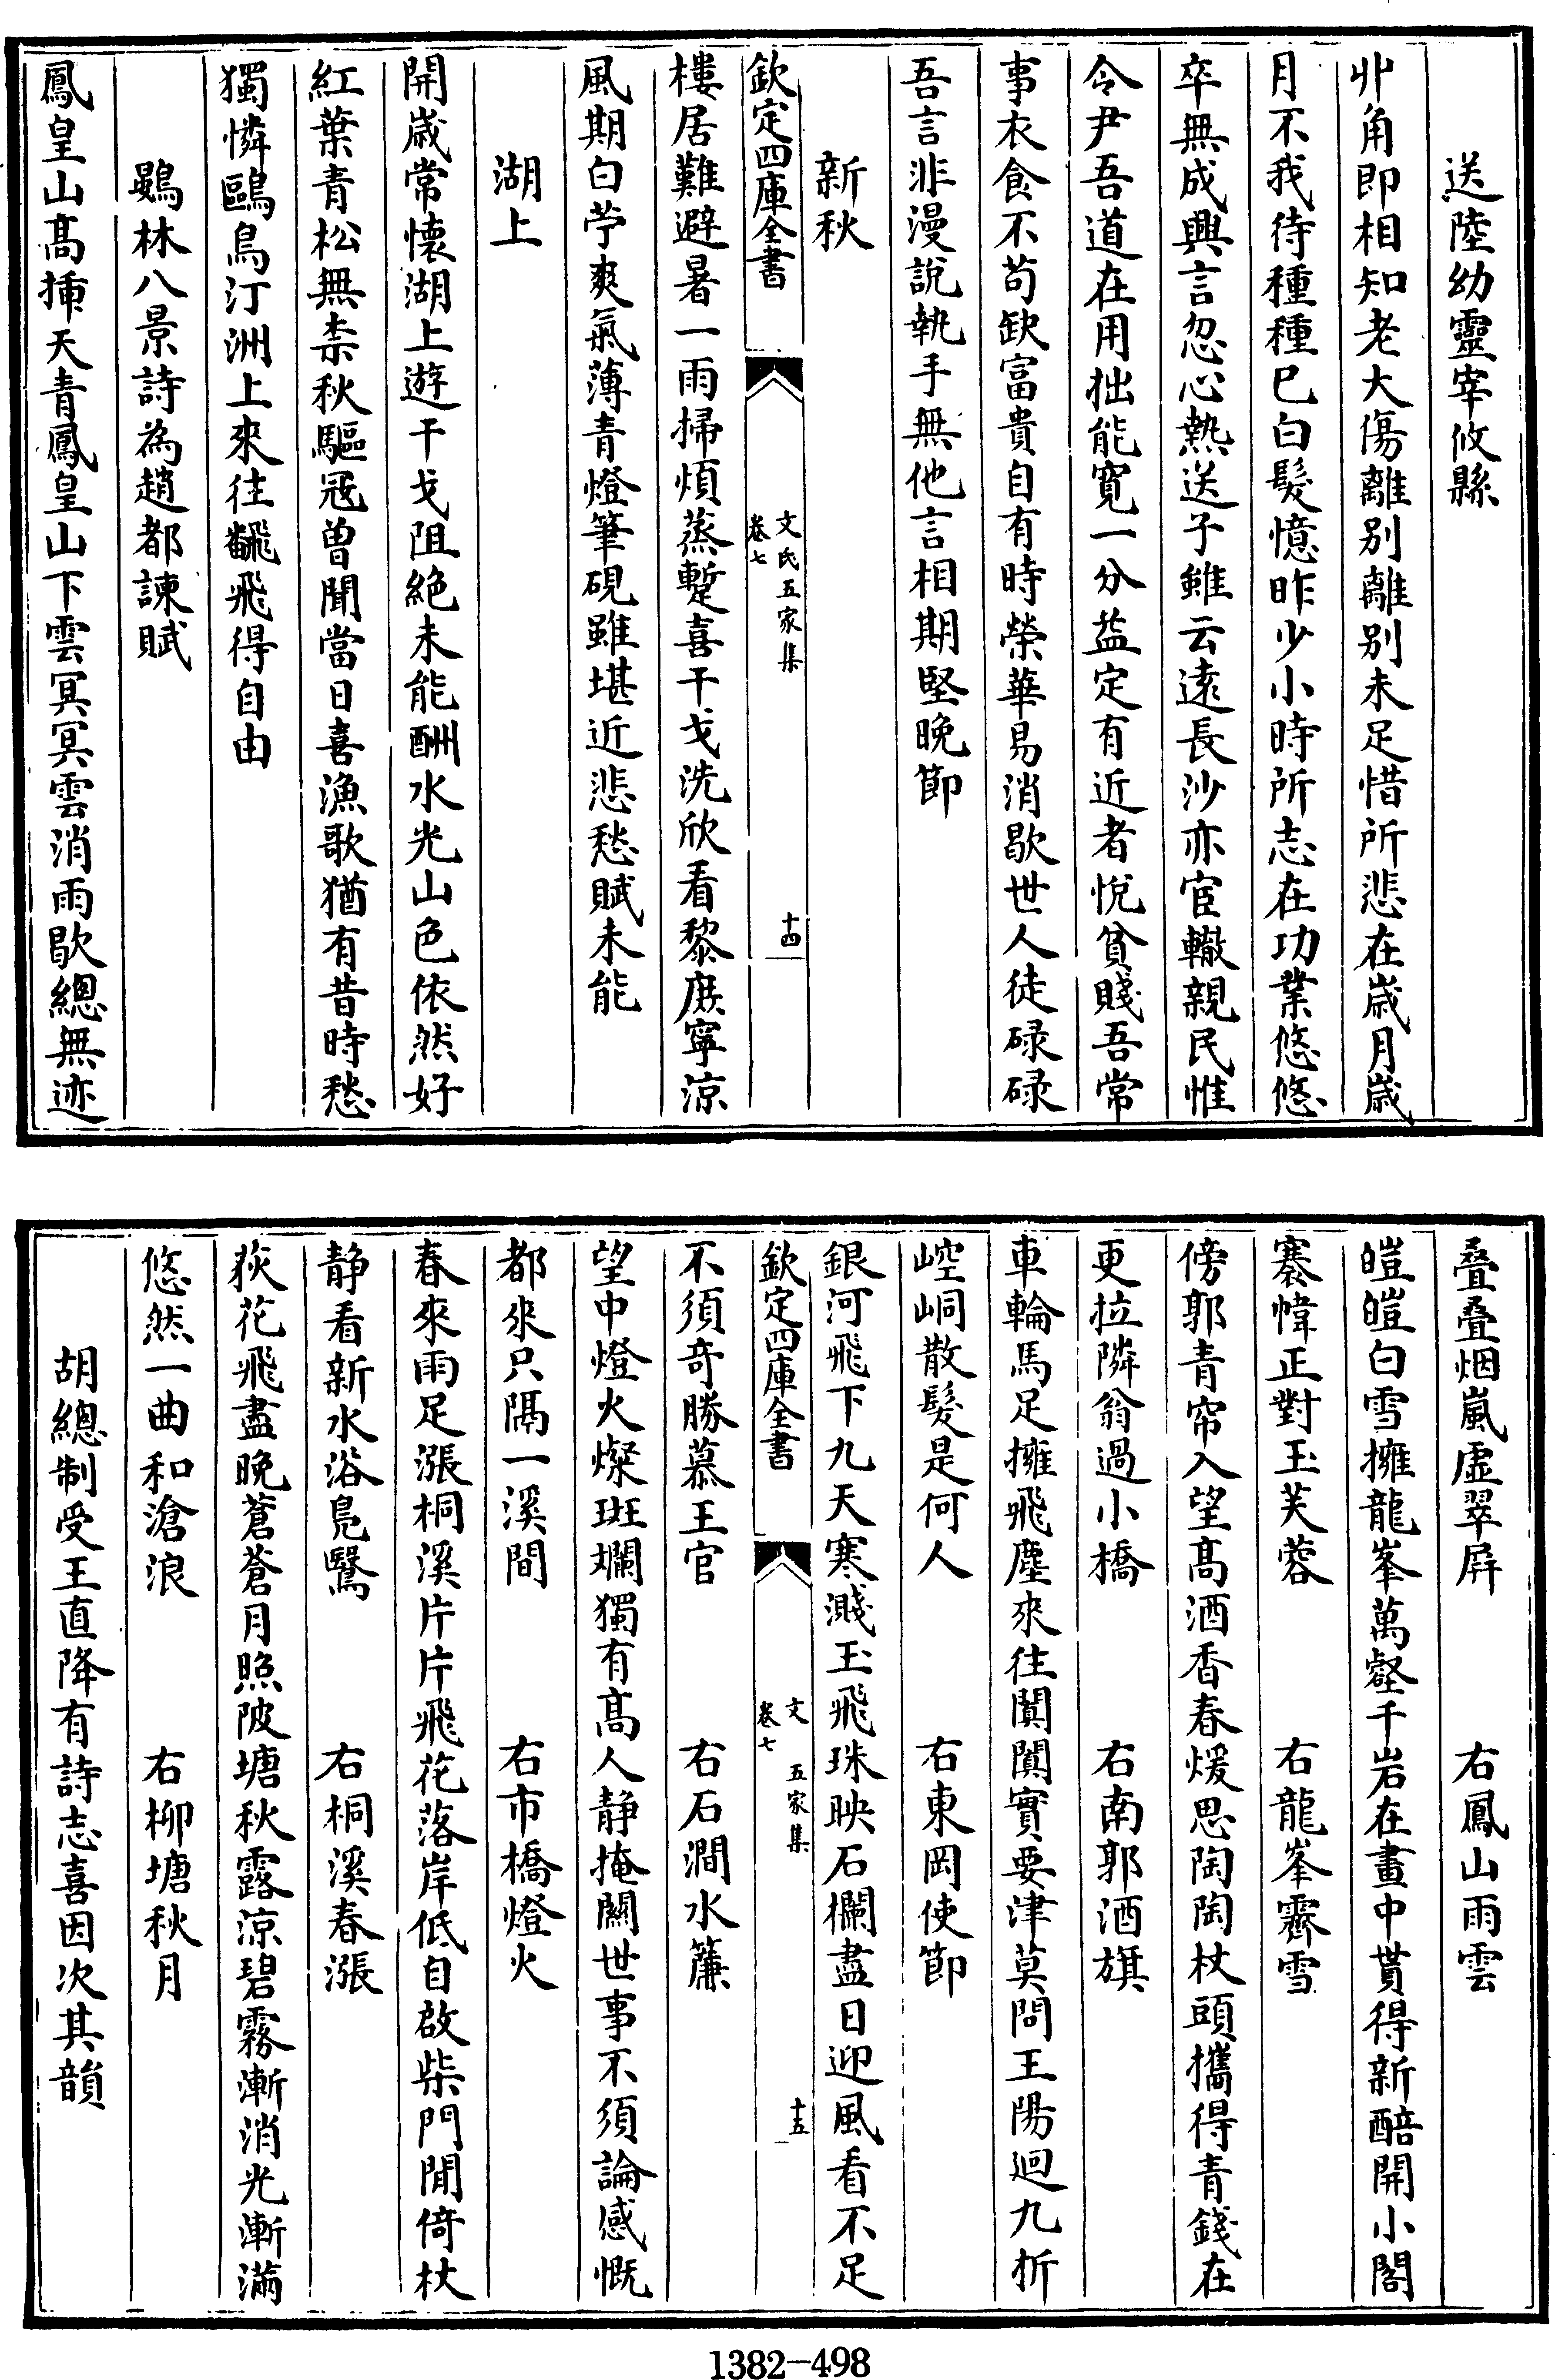 送陸幼靈宰攸縣
丱角即相知老大傷離别離别未足惜所悲在歳月歳
月不我待種種已白髮憶昨少小時所志在功業悠悠
卒無成興言忽心熱送子雖云遠長沙亦宦轍親民惟
令尹吾道在用拙能寛一分益定有近者悅貧賤吾常
事衣食不苟缺富貴自有時榮華易消歇世人徒碌碌
吾言非漫說執手無他言相期堅晚節
新秋
欽定四庫全書
文氏五家集
卷七
十四
樓居難避暑一雨掃煩蒸蹔喜干戈洗欣看黎庶寧涼
風期白苧爽氣薄青燈筆硯雖堪近悲愁賦未能
湖上
開歳常懷湖上遊干戈阻絶未能酬水光山色依然好
紅葉青松無柰秋驅冦曽聞當日喜漁歌猶有昔時愁
獨憐鷗鳥汀洲上來往飜飛得自由
鶢林八景詩為趙都諫賦
鳳皇山髙揷天青鳳皇山下雲冥冥雲消雨歇總無迹
叠叠烟嵐虛翠屏 右鳳山雨雲
皚皚白雪擁龍峯萬壑千岩在畫中貰得新醅開小閣
褰幃正對玉芙蓉 右龍峯霽雪
傍郭青帘入望髙酒香春煖思陶陶杖頭攜得青錢在
更拉隣翁過小橋 右南郭酒旗
車輪馬足擁飛塵來往闐闐實要津莫問王陽迴九折
崆峒散髮是何人 右東岡使節
銀河飛下九天寒濺玉飛珠映石欄盡日迎風看不足
欽定四庫全書
文 五家集
卷七
十五
不須奇勝慕王官 右石澗水簾
望中燈火燦斑斕獨有髙人静掩關世事不須論感慨
都來只隔一溪間 右市橋燈火
春來雨足漲桐溪片片飛花落岸低自啟柴門閒倚杖
静看新水浴鳧鷖 右桐溪春漲
荻花飛盡晚蒼蒼月照陂塘秋露涼碧霧漸消光漸滿
悠然一曲和滄浪 右柳塘秋月
胡總制受王直降有詩志喜因次其韻
1382-498